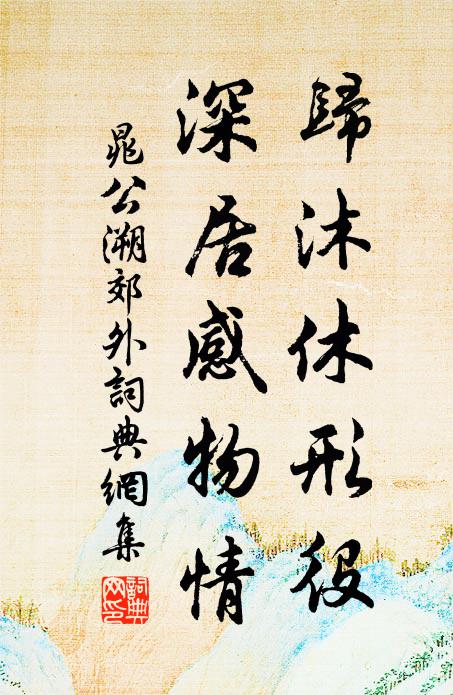 歸沐休形役
深居感物情
晁公溯郊外詞典網集